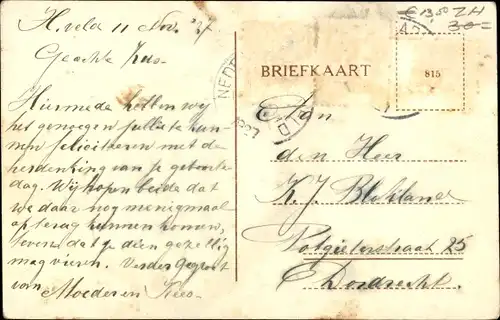 H. veld 11 Nov. '27
Geachte Kees
Hiermede hebben wij
het genoegen jullie te kun-
nen feliciteeren met de
herdenking van je geboorte
dag. Wij hopen beide dat
we daar nog menigmaal
op terug kunnen komen,
tevens dat je dien gezellig
mag vieren. Verder gegroet
van Moeder en Kees.
€ 13,50 ZH
30=
BRIEFKAART
815
NEDE
Aan
den Heer
K. J. Blokland
Potgieterstraat 25
Dordrecht.